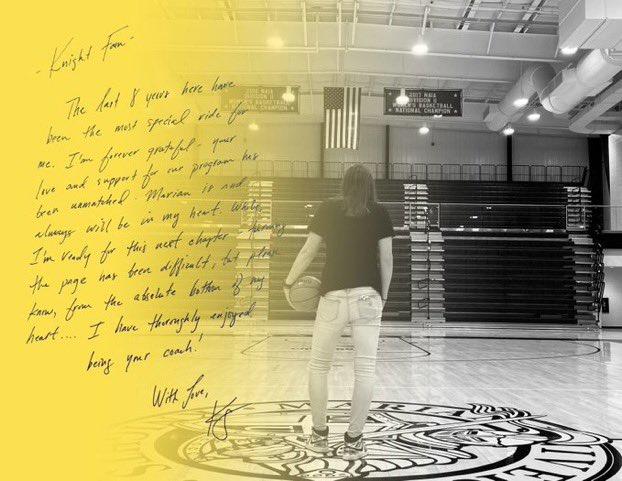 - Knight Fam -
The last 8 years here have
been the most special ride for
me. I'm forever grateful - your
love and support for our program has
been unmatched. Marian is and
always will be in my heart. While
I'm ready for this next chapter - turning
the page has been difficult, but please
know, from the absolute bottom of my
heart.... I have thoroughly enjoyed
being your coach!
With Love,
2016 NAIA
DIVISION II
WOMEN'S BASKETBALL
NATIONAL CHAMPION
2017 NAIA
DIVISION II
WOMEN'S BASKETBALL
NATIONAL CHAMPION